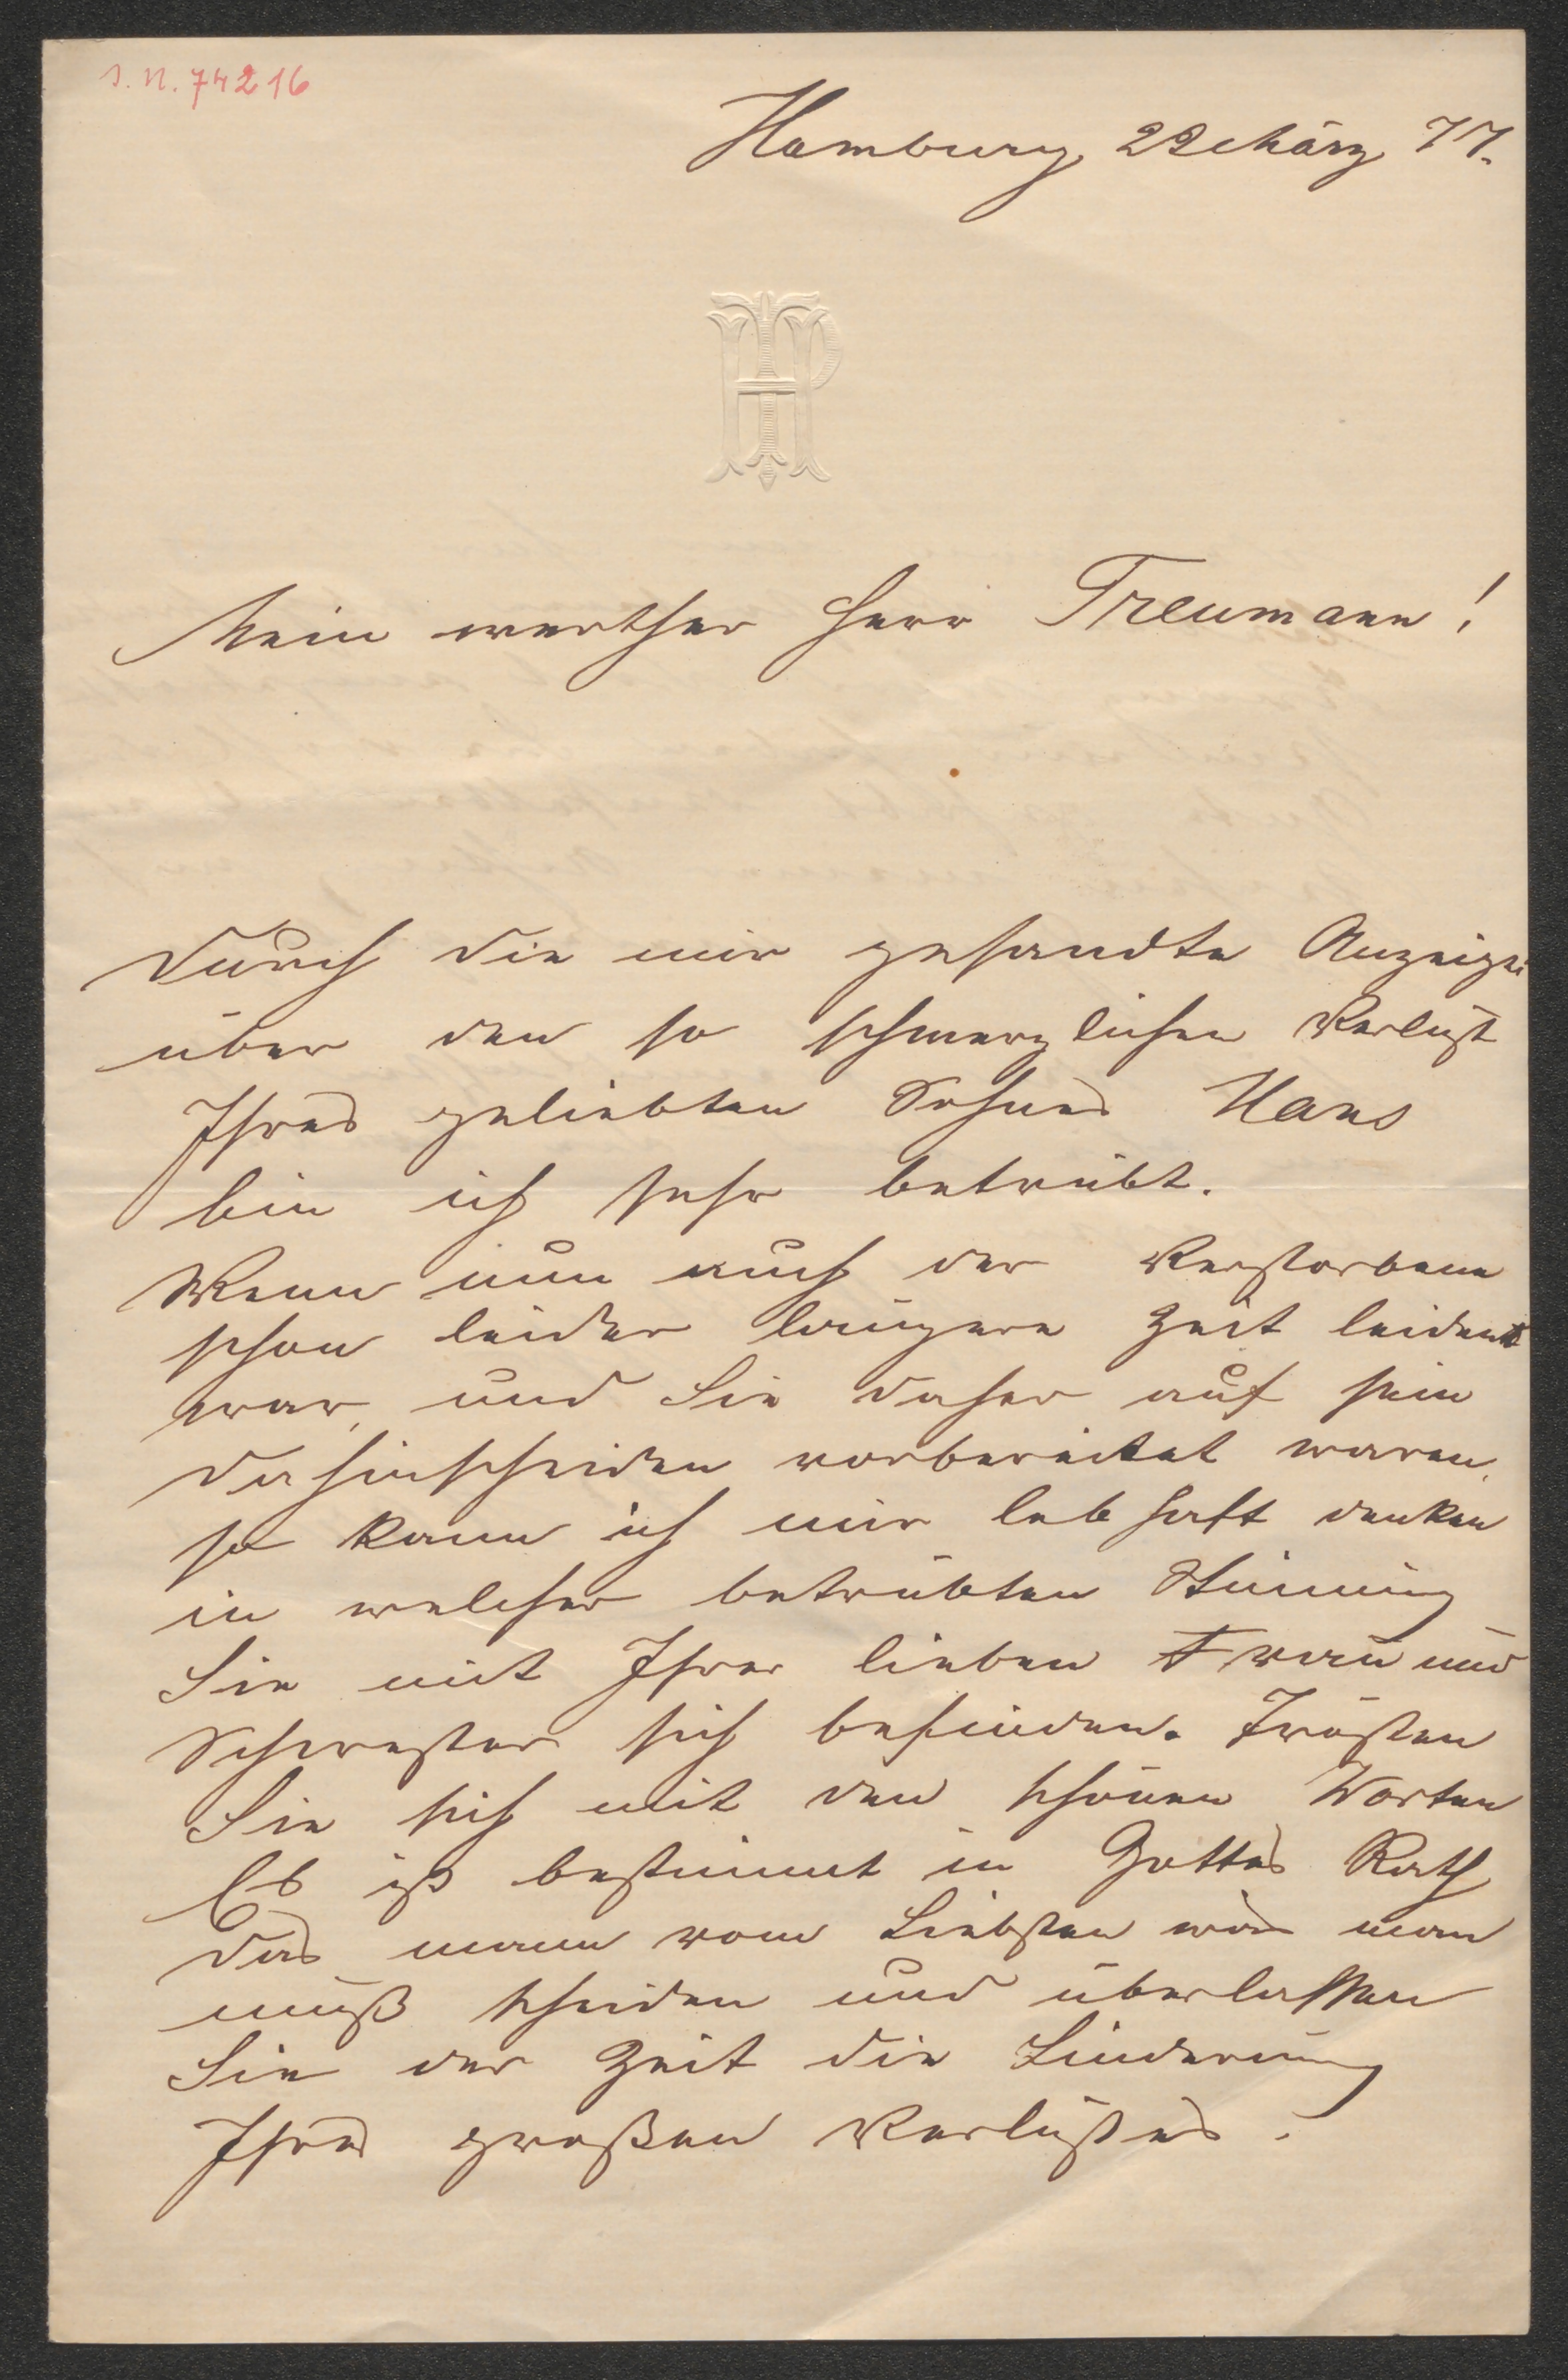 I. N. 74216
Hamburg, 22 März 77.
HP
Mein werther Herr Treumann!
Durch die mir gesandte Anzeige
über den so schmerzlichen Verlust
Ihres geliebten Sohnes Hans
bin ich sehr betrübt.
Wenn nun auch der Verstorbene
schon leider längere Zeit leidend
war, und Sie daher auf sein
Dahinscheiden vorbereitet waren,
so kann ich mir lebhaft denken
in welcher betrübten Stimung
Sie mit Ihrer lieben Frau und
Schwester sich befinden. Trösten
Sie sich mit den schönen Worten
Es ist bestimmt in Gottes Rath
das mann vom Liebsten was man
muß scheiden und überlassen
Sie der Zeit die Linderung
Ihres großen Verlustes.